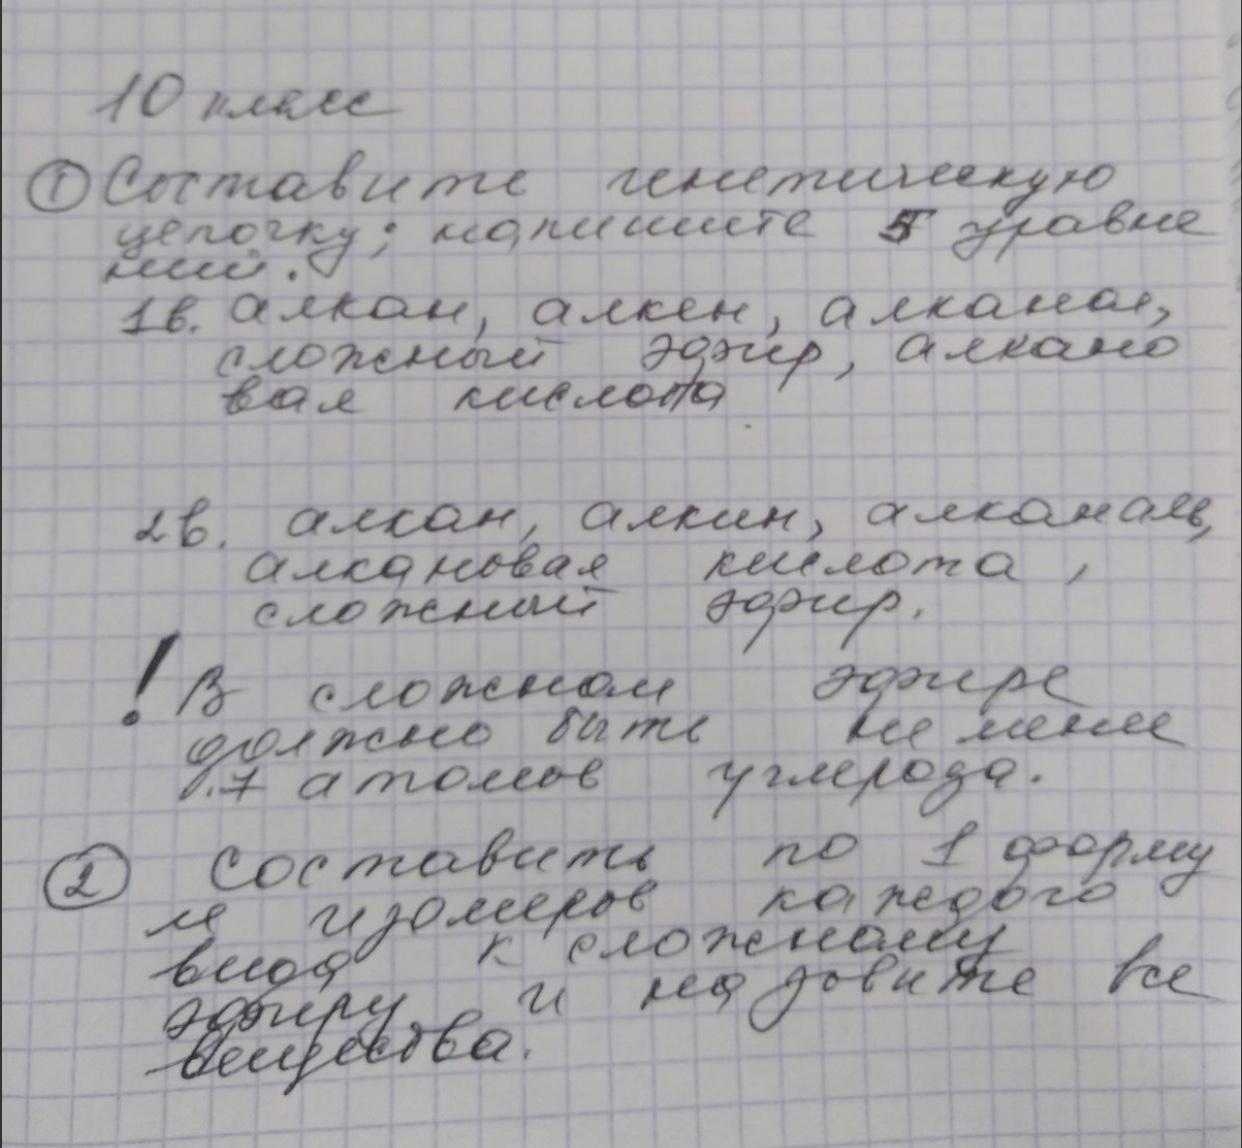 10 класс
① Составите генетическую
цепочку; напишите 5 уравне
ний.
1в. алкан, алкен, алканол,
сложный эфир, алкано
вая кислота
2в. алкан, алкин, алканаль,
алкановая кислота,
сложный эфир.
! В сложном эфире
должно быть не менее
7 атомов углерода.
② Составить по 1 форму
ле изомеров каждого
вида к сложному
эфиру и назовите все
вещества.